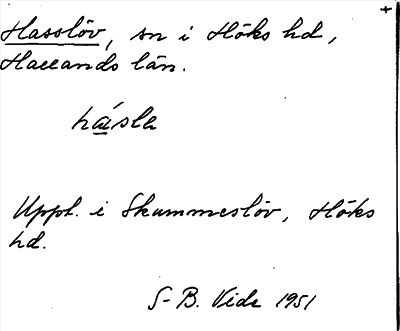 +
Hasslöv, sn i Höks hd,
Hallands län.
hásle
Uppl. i Skummeslöv, Höks
hd.
S-B. Vide 1951